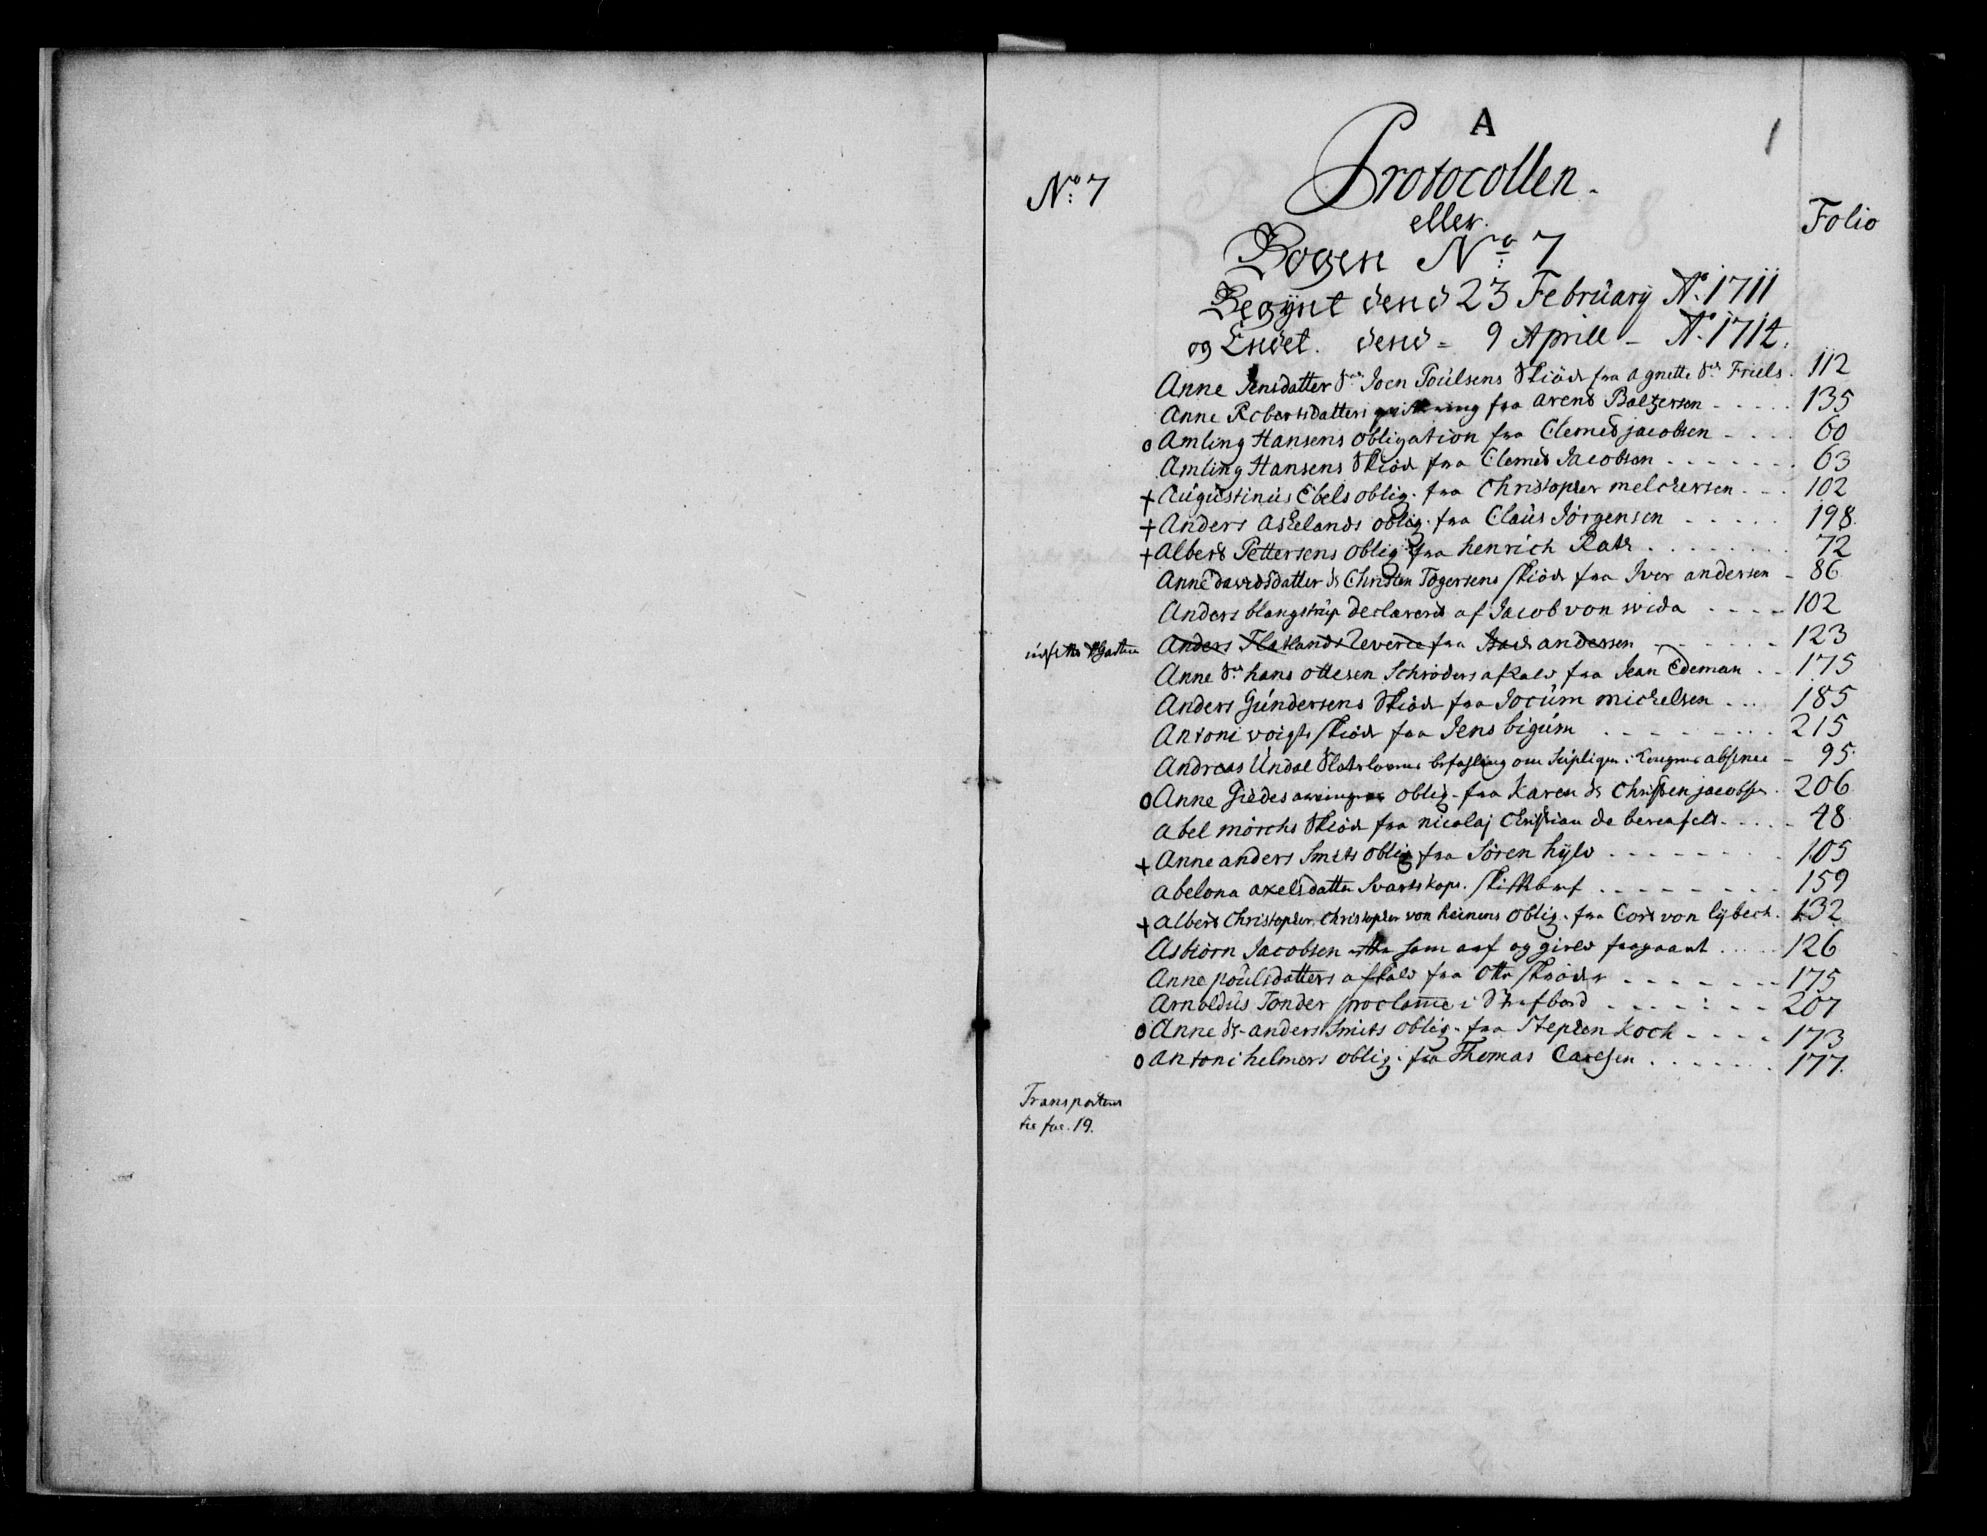 A
1
No: 7
Protocollen.
eller.
Folio
Bogen No: 7
Begynt dend 23 February Ao. 1711
og Endet. dend = 9 Aprill – Ao. 1714.
Anne Jensdatter Sl. Joen Poulsens Skiöde fra Agnette Sl. Friels. 112
Anne Robertsdatters fra Arend Baltzersen - - - - - 135
o Amling Hansens obligation fra Clemed jacobsen - - - - 60
Amling Hansens Skiöde fra Clemed Jacobsen - - - - - - - 63
+ Augustinus Ebels oblig. fra Christopher melchersen - - - 102
+ Anders Askelands oblig. fra Claus Jörgensen - - - - - 198.
+ Albert Pettersens oblig. fra henrich Rate . . . . . . . . 72
Anne davedsdatter Christen Togersens skiöde fra Iver andersen - 86
Anders blangstrup declarered af Jacob von wida - - - - 102
Anders Flatlands Reverce fra andersen - - - - - - - 123
Anne Sl. hans ottesen Schröders afkald fra Jean Edeman - - 175
Anders Gundersens Skiöde fra Jocum michelsen - - - 185
Antoni voigts skiöde fra Jens bigum - - - - - - - - - 215
Andreas Undal befahling om absence - 95.
o Anne Giedes oblig. fra Karen Christen jacobsen. 206
Abel mörchs Skiöde fra nicolaj Christian de - - - - - 48.
+ Anne anders Smits oblig fra Sören hylv - - - - - - - - 105
Abelona axelsdatter Svartskops. - - - - - - - - 159
+ Albert Christopher Christopher von heinens oblig. fra Cort von lybech. 132
Asbiörn Jacobsen som arf og giels - - - - 126
Anne poulsdatters afkald fra Otte - - - - - - - - 175
Arnoldus Tonder proclame i - - - - : - - 207
o Anne anders Smits oblig. fra Stephen Koch - - - - 173
o Antoni helmers oblig. fra Thomas Carlsen . . . . . . . 177.
Transporteres
til fol. 19.